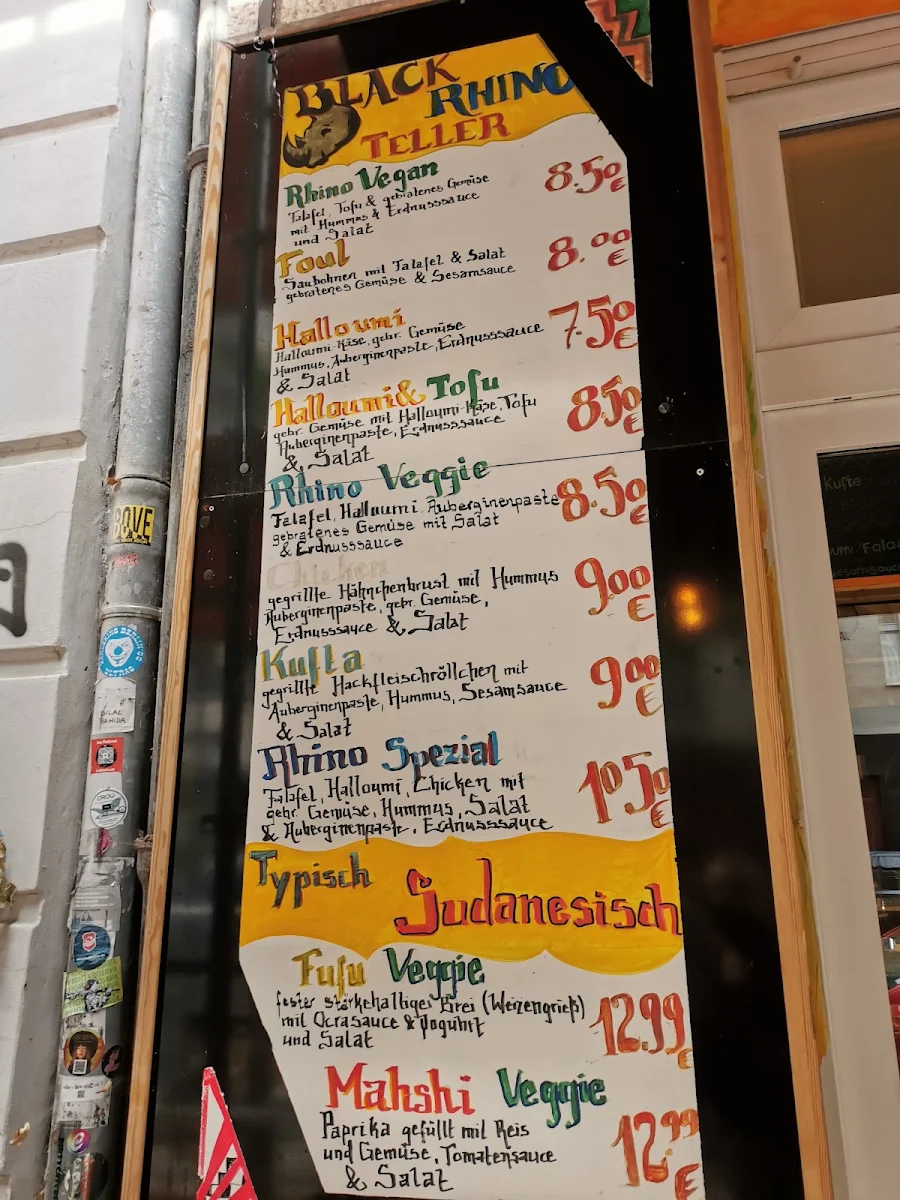 BLACK
RHINO
TELLER
Rhino Vegan 8.50 €
Falafel, Tofu & gebratenes Gemüse
mit Hummus & Erdnusssauce
und Salat
Foul 8.00 €
Saubohnen mit Falafel & Salat
gebratenes Gemüse & Sesamsauce
Halloumi 7.50 €
Halloumi-Käse, gebr. Gemüse
Hummus, Auberginenpaste, Erdnusssauce
& Salat
Halloumi & Tofu 8.50 €
gebr. Gemüse mit Halloumi-Käse, Tofu
Auberginenpaste, Erdnusssauce
& Salat
Rhino Veggie 8.50 €
Falafel, Halloumi, Auberginenpaste
gebratenes Gemüse mit Salat
& Erdnusssauce
Chicken 9.00 €
gegrillte Hähnchenbrust mit Hummus
Auberginenpaste, gebr. Gemüse,
Erdnusssauce & Salat
Kufta 9.00 €
gegrillte Hackfleischröllchen mit
Auberginenpaste, Hummus, Sesamsauce
& Salat
Rhino Spezial 10.50 €
Falafel, Halloumi, Chicken mit
gebr. Gemüse, Hummus, Salat
& Auberginenpaste, Erdnusssauce
Typisch
Sudanesisch
Fufu Veggie
fester stärkehaltiges Brei (Weizengrieß) 12.99 €
mit Ocrasauce & Yoguhrt
und Salat
Mahshi Veggie
Paprika gefüllt mit Reis 12.99 €
und Gemüse, Tomatensauce
& Salat
BOVE
Kufte